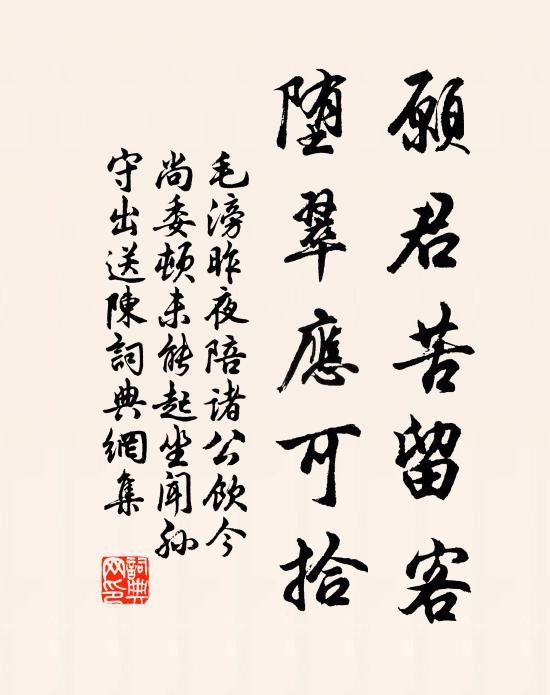 願君苦留客
堕翠應可拾
毛滂昨夜陪諸公飲今
尚委頓未能起坐聞孙
守出送陳詞典網集
詞典網印